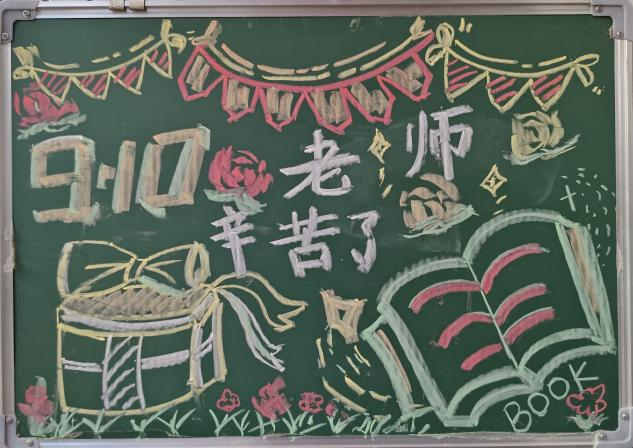 9.10
老师
辛苦了
BOOK